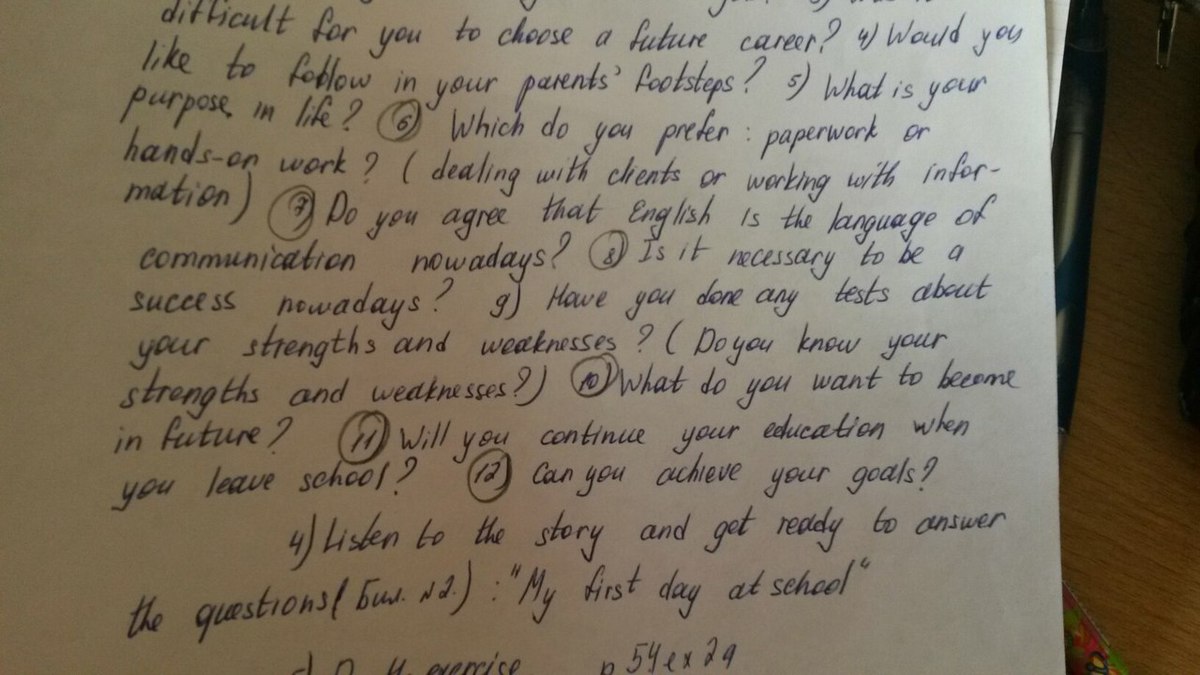 difficult for you to choose a future career? 4) Would you
like to follow in your parents' footsteps? 5) What is your
purpose in life? 6 Which do you prefer : paperwork or
hands-on work? ( dealing with clients or working with infor-
mation) 7) Do you agree that English is the language of
communication nowadays? 8) Is it necessary to be a
success nowadays? 9) Have you done any tests about
your strengths and weaknesses? ( Do you know your
strengths and weaknesses?) 10) What do you want to become
in future? 11) Will you continue your education when
you leave school? 12) Can you achieve your goals?
4) Listen to the story and get ready to answer
the questions( Бил. №2.) : "My first day at school"
exercise p 54 ex 2a